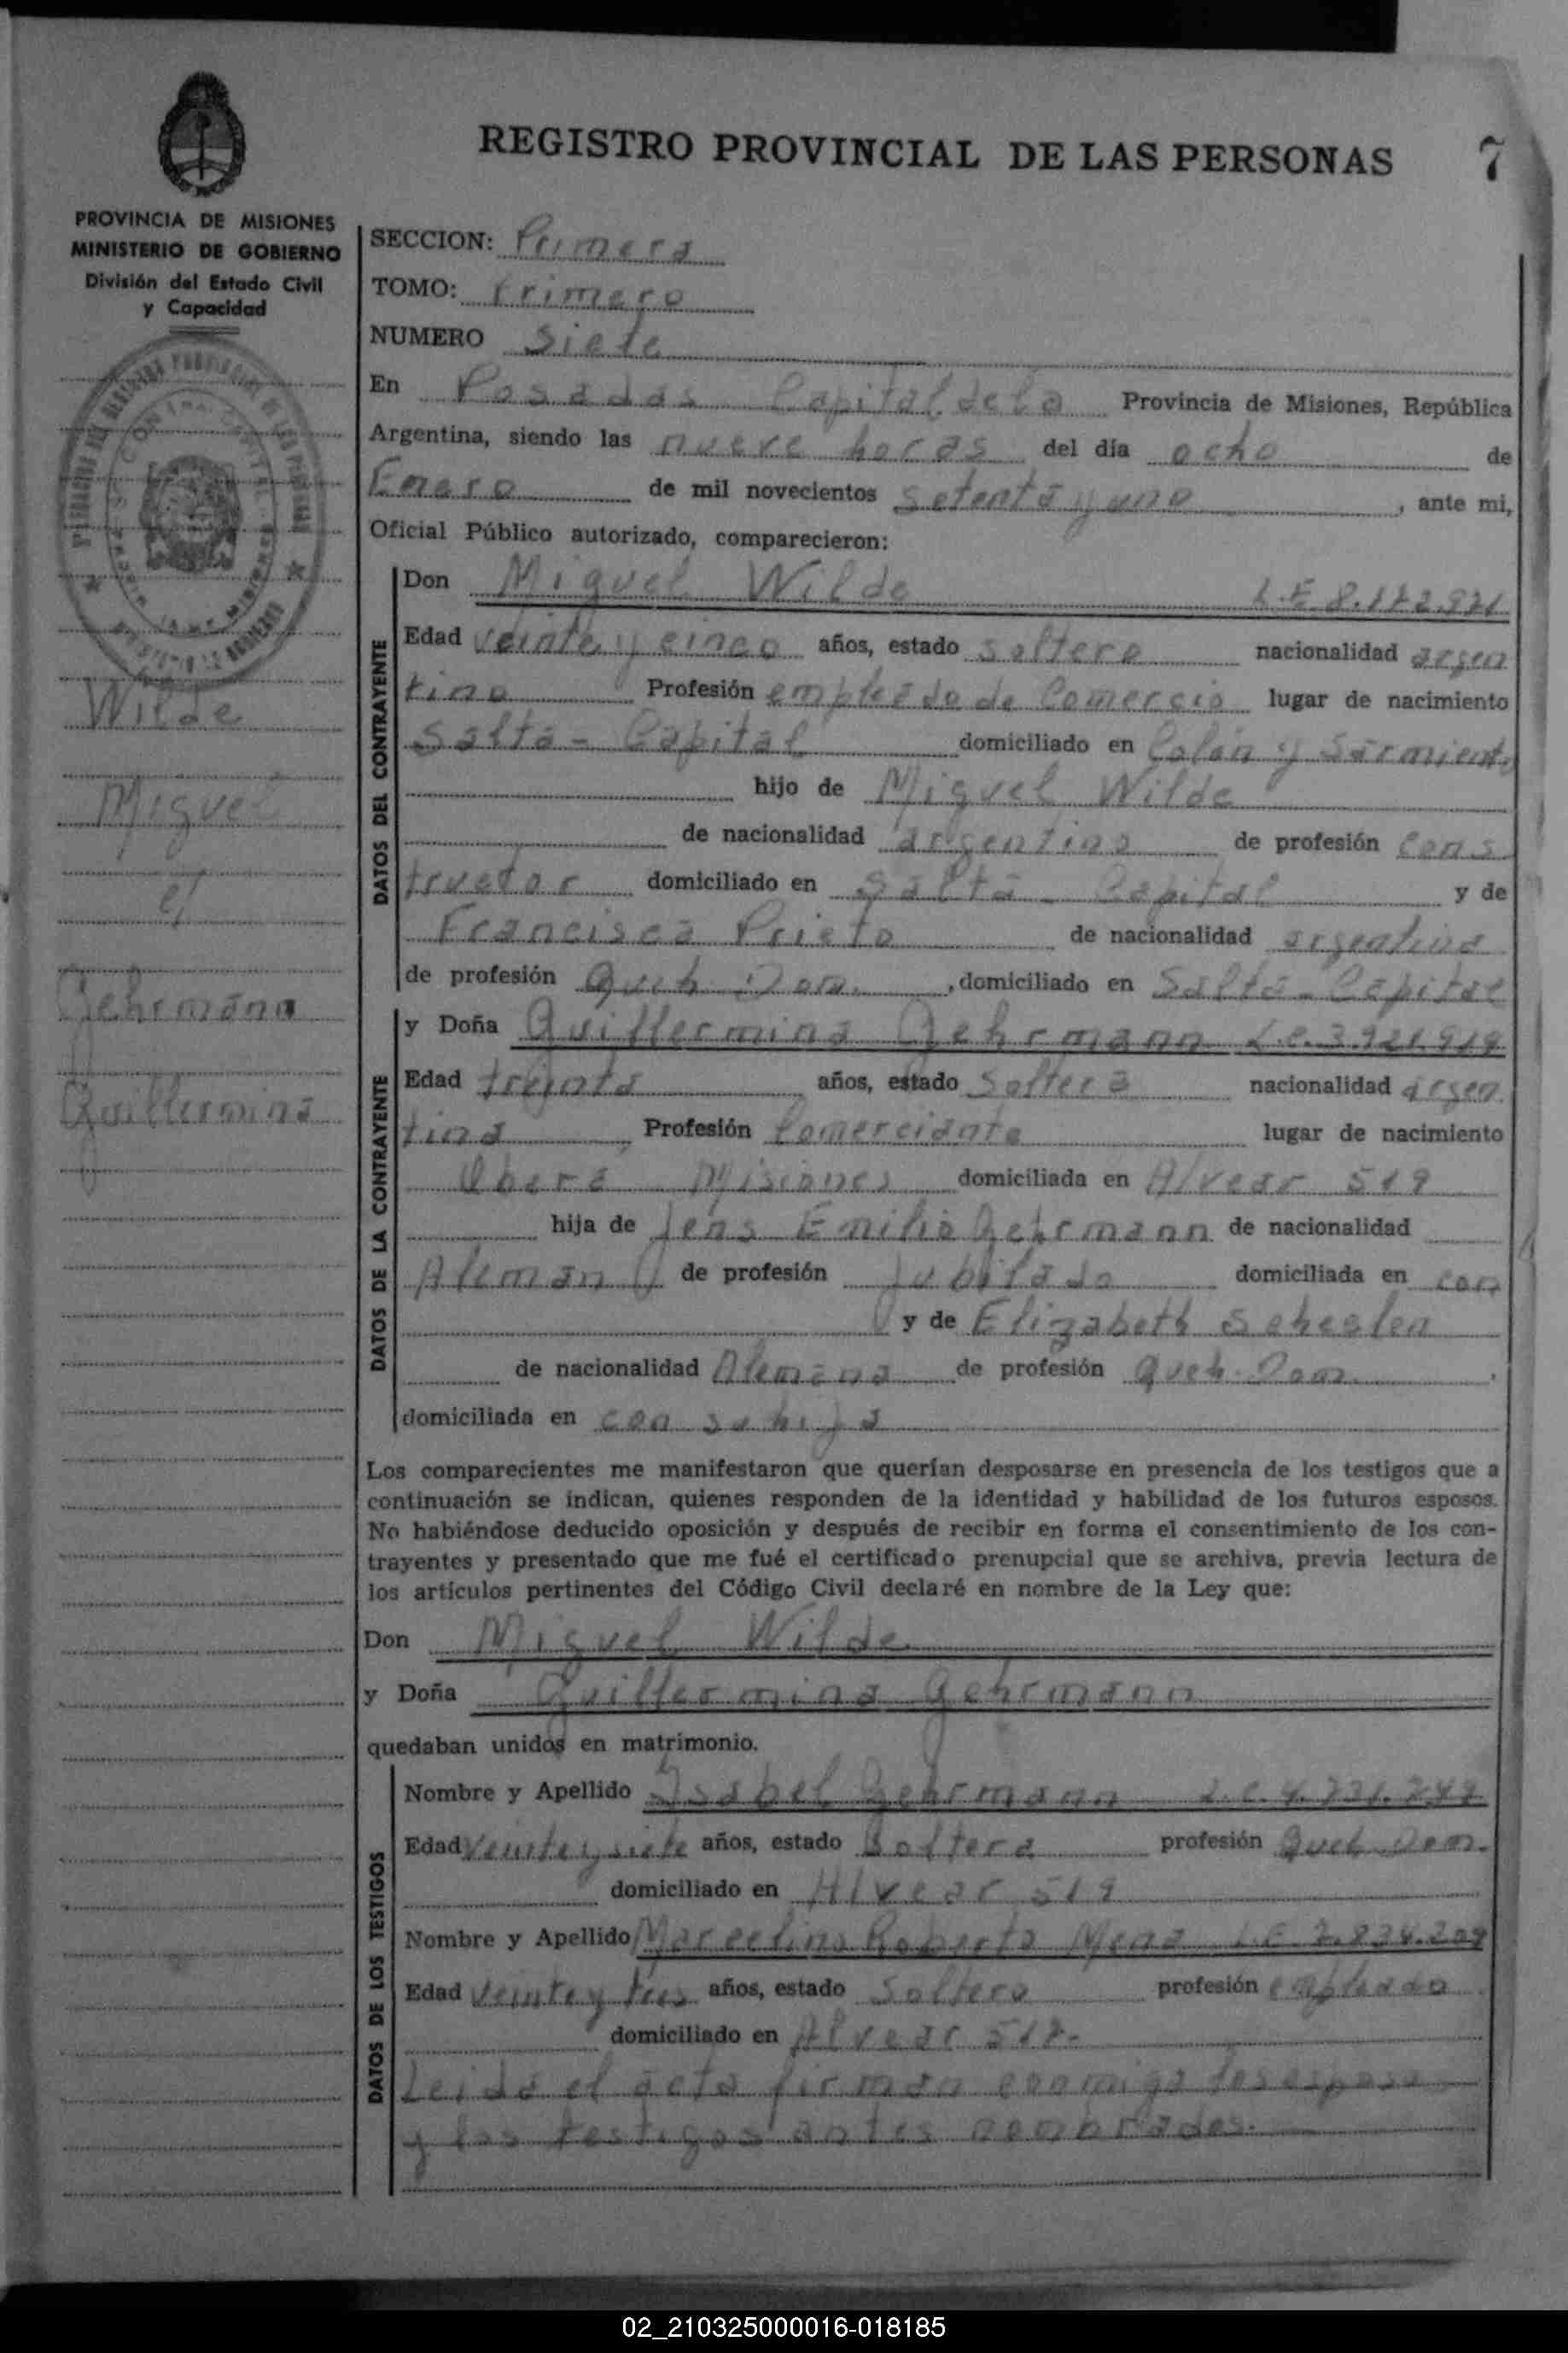 REGISTRO PROVINCIAL DE LAS PERSONAS 7
PROVINCIA DE MISIONES
MINISTERIO DE GOBIERNO
División del Estado Civil
y Capacidad
Wilde
Miguel
c/
Gehrmann
Guillermina
SECCION: Primera
TOMO: Primero
NUMERO Siete
En Posadas Capital de la Provincia de Misiones, República
Argentina, siendo las nueve horas del día ocho de
Enero de mil novecientos setenta y uno, ante mi,
Oficial Público autorizado, comparecieron:
DATOS DEL CONTRAYENTE
Don Miguel Wilde L.E
Edad veinte y cinco años, estado soltero nacionalidad argen
tino Profesión empleado de Comercio lugar de nacimiento
Salta - Capital domiciliado en Colón y Sarmiento
hijo de Miguel Wilde
de nacionalidad argentino de profesión cons
tructor domiciliado en Salta - Capital y de
Francisca Prieto de nacionalidad argentina
de profesión Queh. Dom. , domiciliado en Salta - Capital
DATOS DE LA CONTRAYENTE
y Doña Guillermina Gehrmann L.C. 3.921.919
Edad treinta años, estado Soltera nacionalidad argen
tina Profesión Comerciante lugar de nacimiento
Oberá Misiones domiciliada en Alvear 519
hija de Jens Emilio Gehrmann de nacionalidad
Aleman de profesión Jubilado domiciliada en con
y de Elizabeth
de nacionalidad Alemana de profesión Queh. Dom.
domiciliada en con su hija
Los comparecientes me manifestaron que querían desposarse en presencia de los testigos que a
continuación se indican, quienes responden de la identidad y habilidad de los futuros esposos.
No habiéndose deducido oposición y después de recibir en forma el consentimiento de los con-
trayentes y presentado que me fué el certificado prenupcial que se archiva, previa lectura de
los artículos pertinentes del Código Civil declaré en nombre de la Ley que:
Don Miguel Wilde
y Doña Guillermina Gehrmann
quedaban unidos en matrimonio.
DATOS DE LOS TESTIGOS
Nombre y Apellido Isabel Gehrmann L.C.
Edad veinte y siete años, estado Soltera profesión Queh. Dom.
domiciliado en Alvear 519
Nombre y Apellido Marcelino Roberto Mena L.E
Edad veinte y tres años, estado Soltero profesión empleado
domiciliado en Alvear
Leida el acta firman conmigo los esposos
y los testigos antes nombrados.
02_210325000016-018185